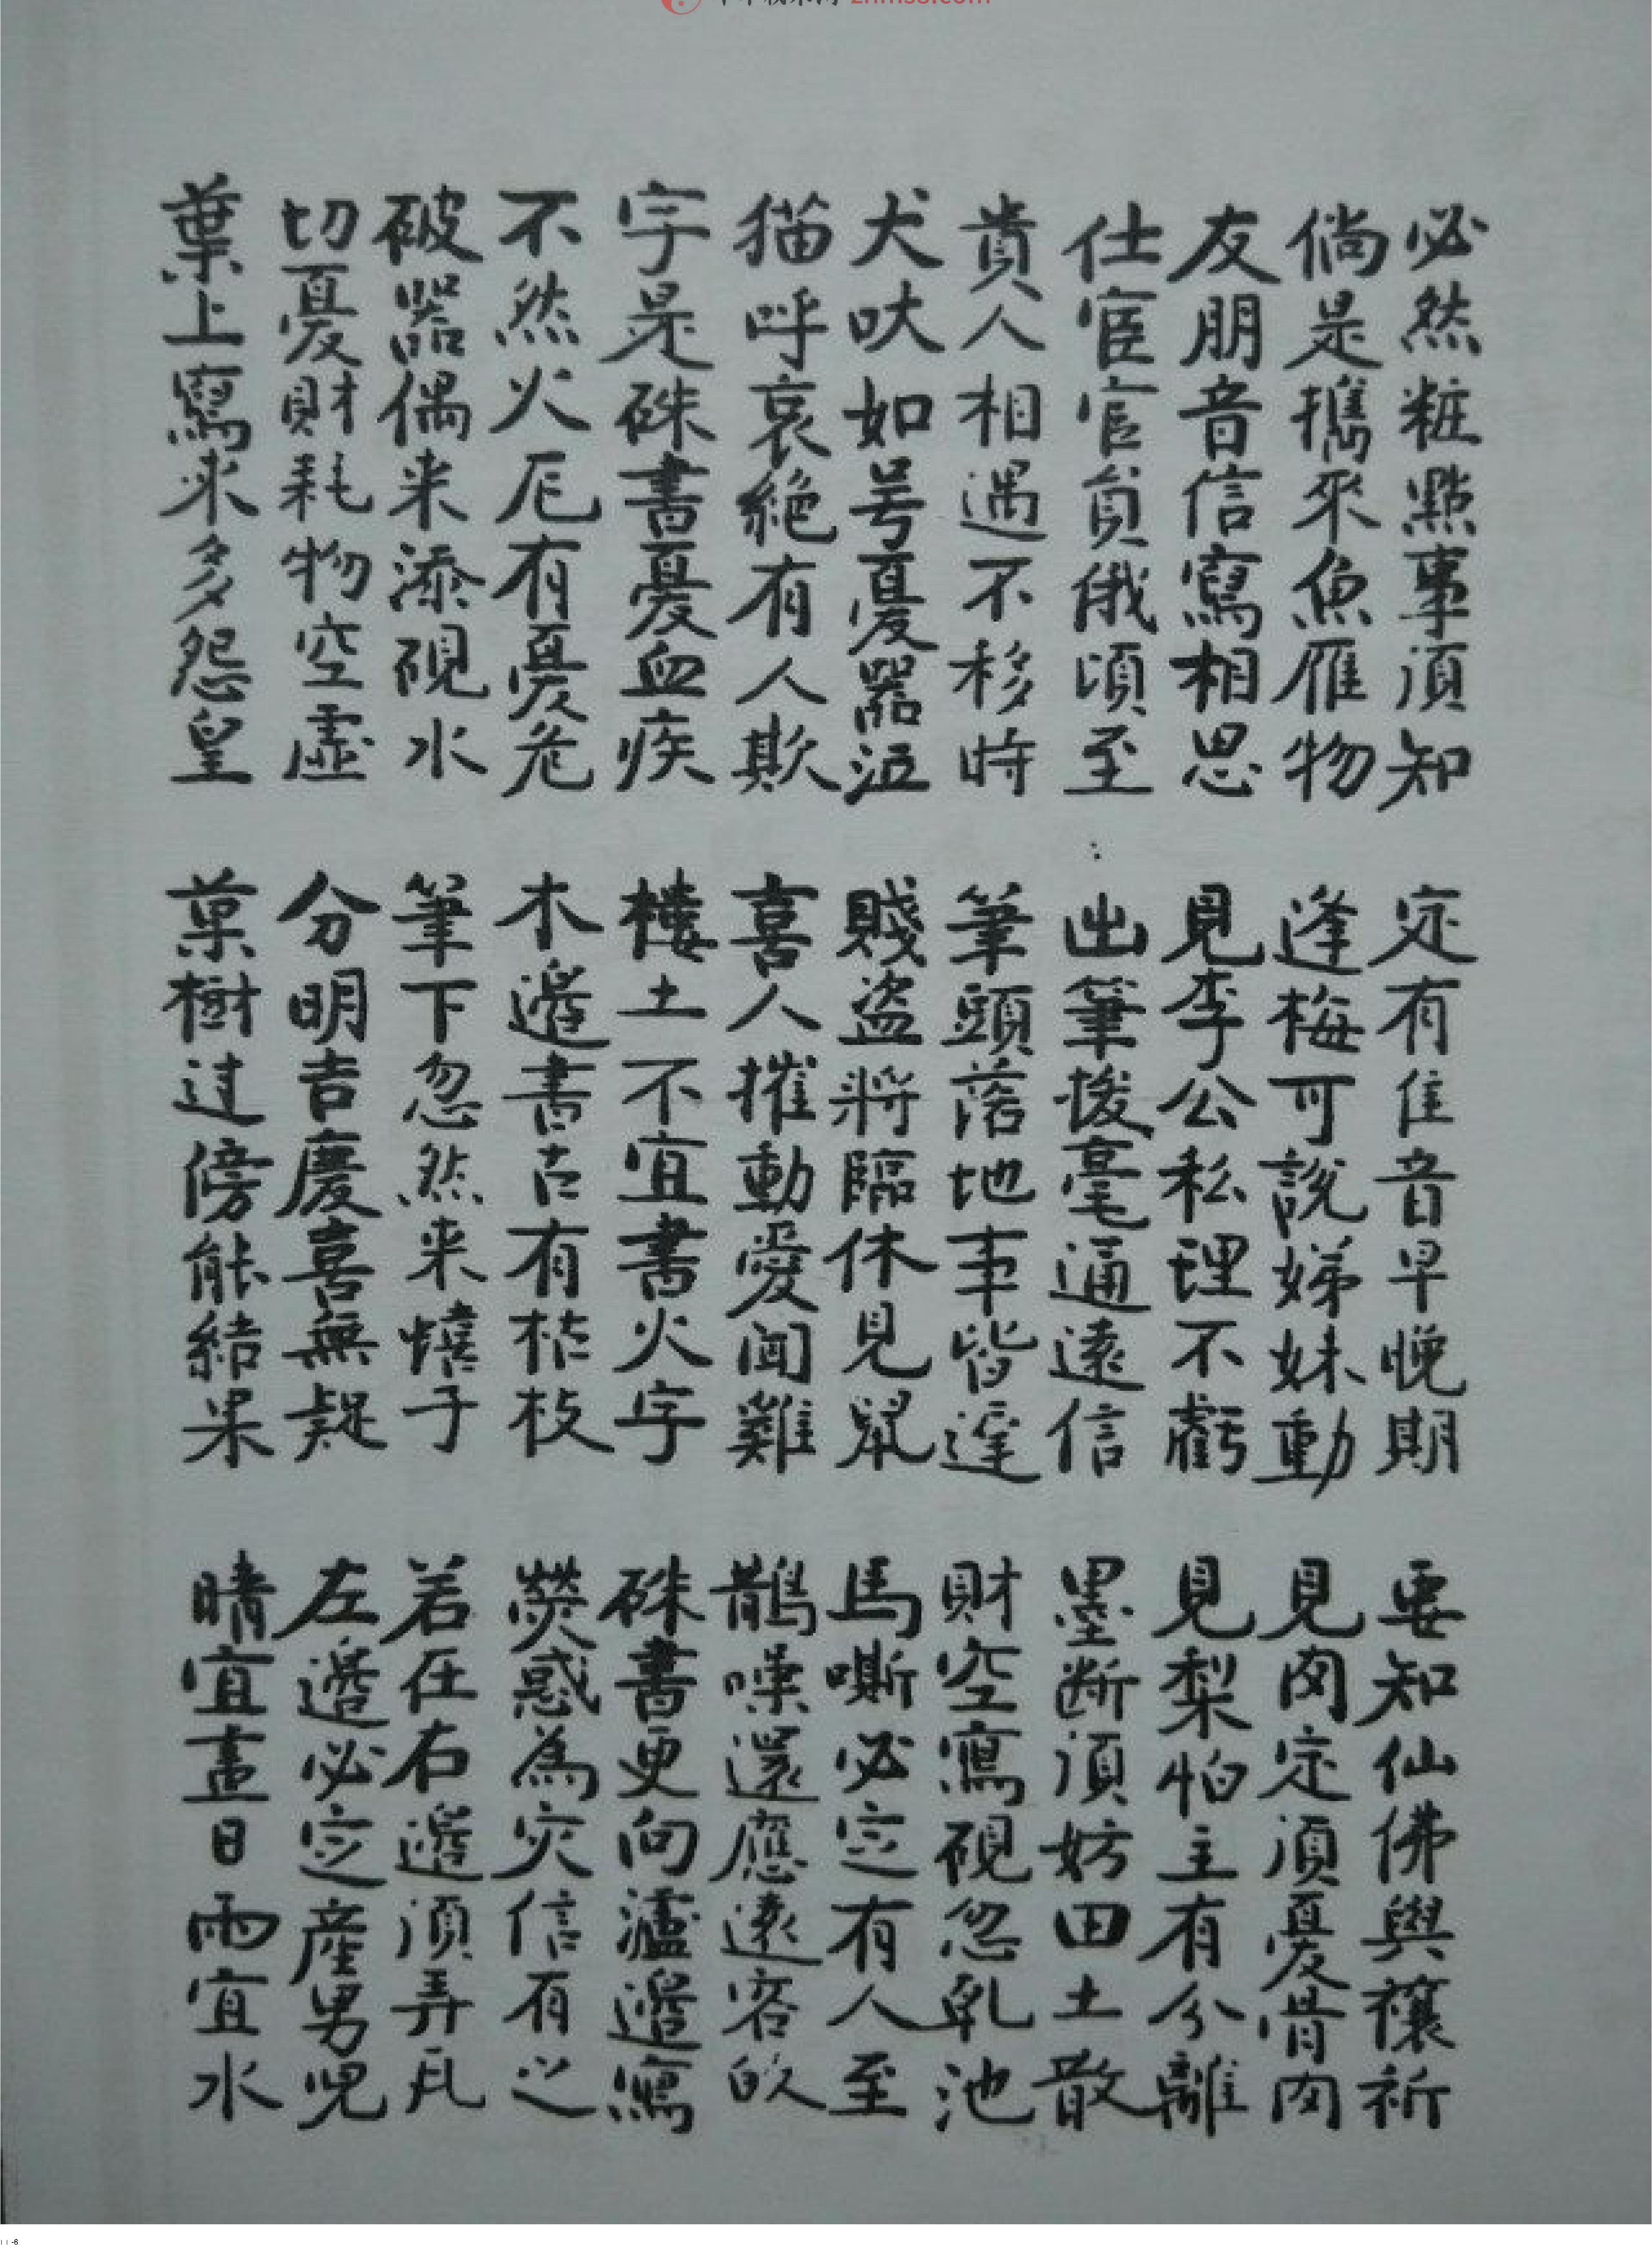 必然粧點事須知
定有佳音早晚期
要知仙佛與禳祈
倘是攜來魚雁物
逢梅可說娣妹動
見肉定須憂骨肉
友朋音信寫相思
見李公私理不虧
見梨怕主有分離
仕宦官員俄頃至
出筆拨毫通遠信
墨断須妨田土散
貴人相遇不移時
筆頭落地事皆遲
財空寫硯忽乾池
犬吠如号憂器泣
賤盗將臨休見鼠
馬嘶必定有人至
猫呼哀絕有人欺
喜人摧動愛聞雞
鵲噪還應遠客皈
字是硃書憂血疾
樓土不宜書火字
硃書更向爐邊寫
不然火厄有憂危
木邊書古有枯枝
熒惑為災信有之
破器偶来添硯水
筆下忽然来蟢子
若在右邊須弄瓦
切憂財耗物空虛
分明吉慶喜無疑
左邊必定產男兒
葉上寫來多怨皇
菓樹过傍能結果
晴宜畫日雨宜水